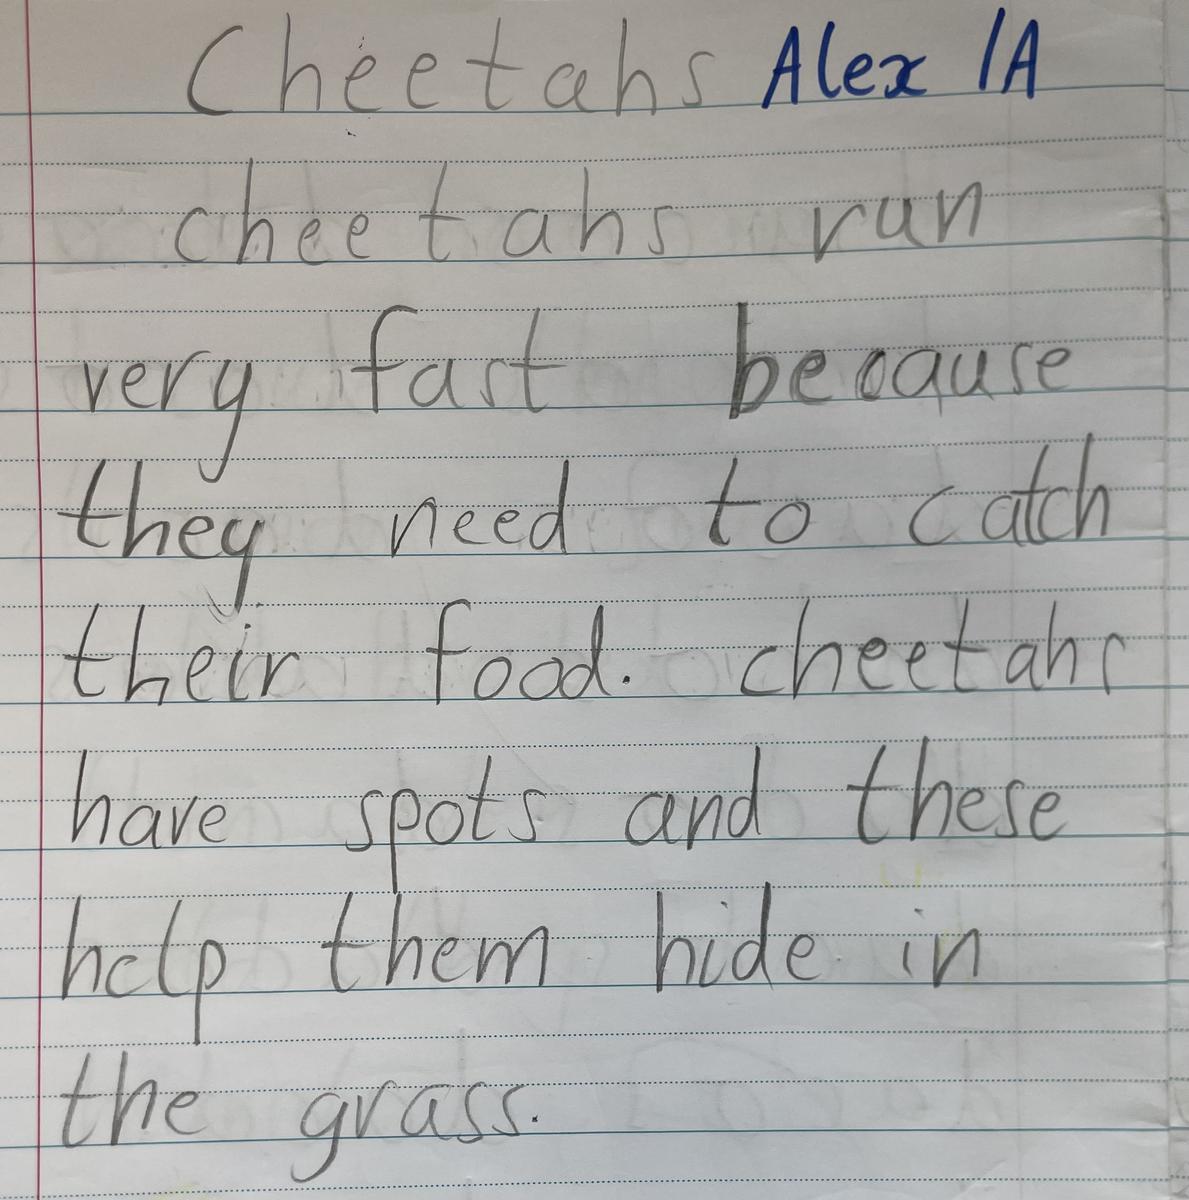 Cheetahs Alex 1A
cheetahs run
very fast because
they need to catch
their food. cheetahs
have spots and these
help them hide in
the grass.